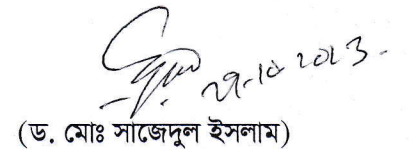 10 2013
(ড. মোঃ সাজেদুল ইসলাম)